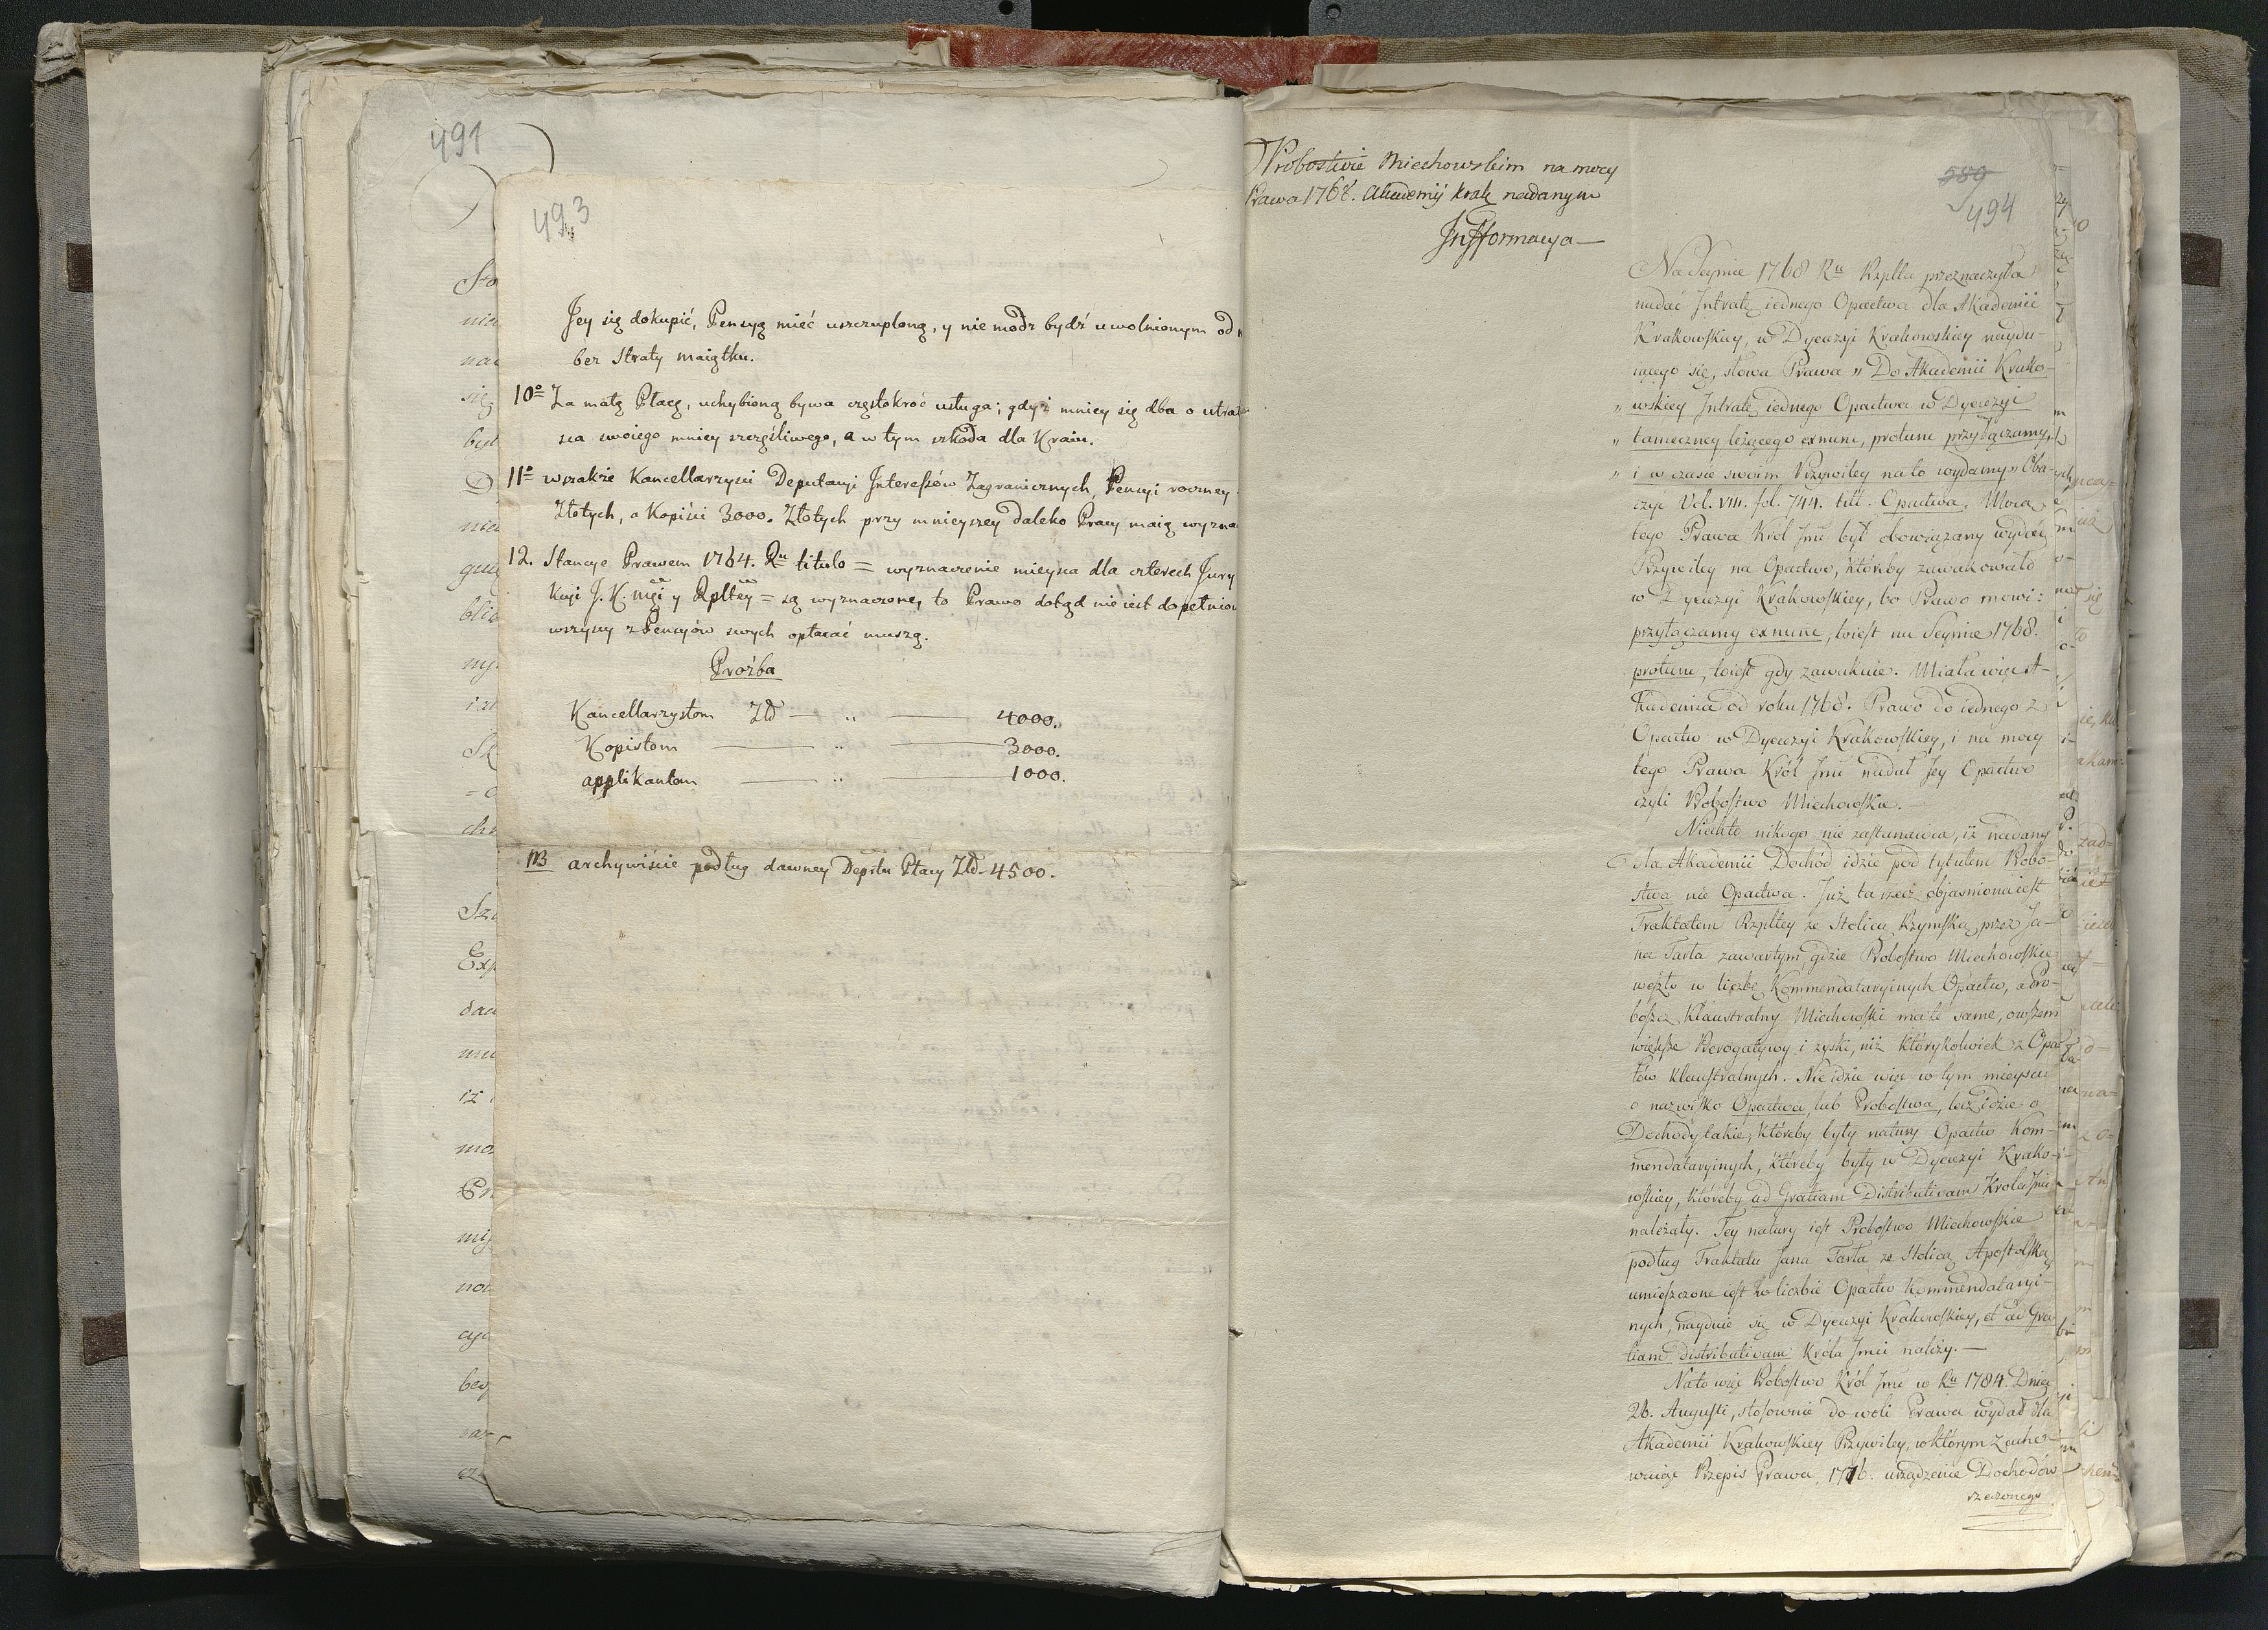 491
493
Jey się dokupić, Pensyą mieć uszczuploną, y nie módz bydź uwolnionym od
bez Straty maiątku.
10º Za małą Płacą, uchybioną bywa częstokroć usługa; gdyż mniey się dba o utra
swoiego mniey szczęśliwego, a w tym szkoda dla Kraiu.
11º wszakże Kancellarzyści Deputacyi Interessów Zagranicznych, Pensyi roczney
Złotych, a Kopiści 3000. Złotych przy mnieyszey daleko Pracy maią wyzna
12. Stancye Prawem 1764. Ru titulo = wyznaczenie mieysca dla czterech Jury
J. K. Mci y Rpltey = są wyznaczone, to Prawo dotąd nie iest dopełnio
wszyscy z Pensyów swych opłacać muszą.
Proźba
Kancellarzystom Złł — „ — 4000.
Kopistom — „ — 3000.
applikantom — „ — 1000.
NB archywiście podług dawney Deptłu Płacy Złł. 4500.
Probostwie Miechowskim na mocy
Prawa 1768. Akademij Krak nadanym
Jnfformacya —
580
494
Na Seymie 1768 Ru Rzplta przeznaczyła
nadać Jntratę iednego Opactwa dla Akademii
Krakowskiey, w Dyecezyi Krakowskiey naydu-
iącego się, słowa Prawa „ Do Akademii Krako-
„ wskiey Jntratę iednego Opactwa w Dyecezyi
„ tameczney leżącego exnunc, protunc przyłączamy,
„ i w czasie swoim Przywiley na to wydamy „ Oba-
czyć Vol. VIII. fol. 744. titl. Opactwa. Mocą
tego Prawa Król Jmć był obowiązany wydać
Przywiley na Opactwo, któreby zawakowało
w Dyecezyi Krakowskiey, bo Prawo mowi:
przyłączamy exnunc, toiest na Seymie 1768.
protunc, toiest gdy zawakuie. Miała więc A-
kademia od roku 1768. Prawo do iednego z
Opactw w Dyecezyi Krakowskiey, i na mocy
tego Prawa Król Jmć nadał Jey Opactwo
czyli Probostwo Miechowskie. —
Niechto nikogo nie zastanawia, iż nadany
dla Akademii Dochód idzie pod tytułem Probo-
stwa nie Opactwa. Już ta rzecz objasniona iest
Traktatem Rzpltey ze Stolicą Rzymską przez Ja-
na Tarła zawartym, gdzie Probostwo Miechowskie
weszło w liczbę Kommendataryinych Opactw, a Pro-
boszcz Klaustralny Miechowski ma te same, owszem
większe Prerogatywy i zyski, niż którykolwiek z Opa-
tów klaustralnych. Nie idzie więc w tym mieyscu
o nazwisko Opactwa, lub Probostwa, lecz idzie o
Dochody takie, któreby były natury Opactw Kom-
mendataryinych, któreby były w Dyecezyi Krako-
wskiey, któreby ad Gratiam Distributivam Krola Jmci
należały. Tey natury iest Probostwo Miechowskie
podług Traktatu Jana Tarła ze Stolicą Apostolską
umieszczone iest w liczbie Opactw Kommendataryi-
nych, nayduie się w Dyecezyi Krakowskiey, et ad Gra-
tiam Distributivam Króla Jmci należy. —
Na to więc Probostwo Król Jmć w Ru 1784. Dnia
26. Augusti, stosownie do woli Prawa wydał dla
Akademii Krakowskiey Przywiley, w którym zacho-
wuiąc Przepis Prawa 1776. urządzenie Dochodów
rzeczonego